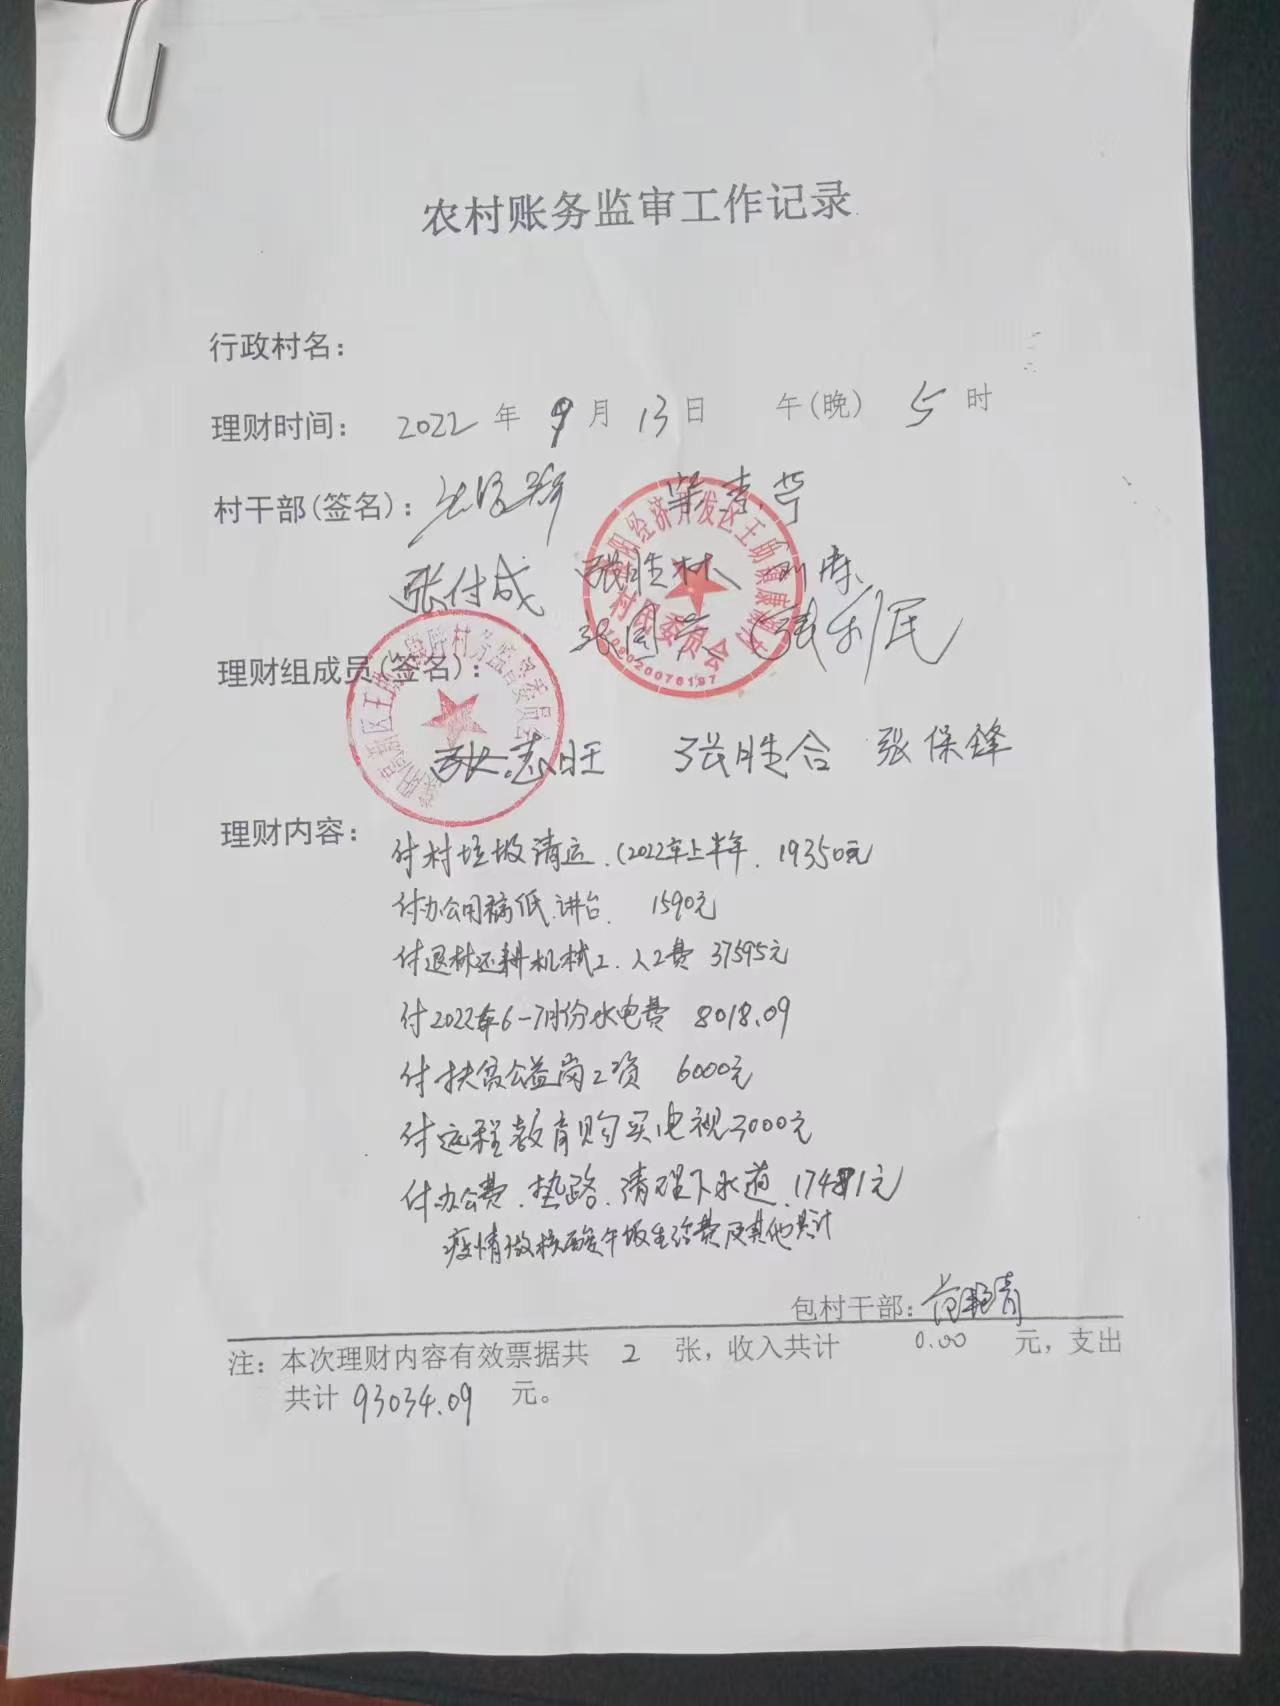 农村账务监审工作记录
行政村名：
理财时间： 2022 年 9 月 13 日 午(晚) 5 时
村干部(签名)：
张付成 张胜林
张国 张利民
经济开发区王助镇康 村
村民委员会
理财组成员(签名)：
村务监督委员会
张志旺 张胜合 张保锋
理财内容：
付村垃圾清运.(2022年上半年. 19350元
付办公用稿纸.讲台. 1590元
付退林还耕机械工.人工费 37595元
付2022年6-7月份水电费 8018.09
付扶贫公益岗工资 6000元
付远程教育购买电视3000元
付办公费.垫路.清理下水道.17481元
疫情做核酸午饭生活费及其他共计
包村干部：
注：本次理财内容有效票据共 2 张，收入共计 0.00 元，支出
共计 93034.09 元。